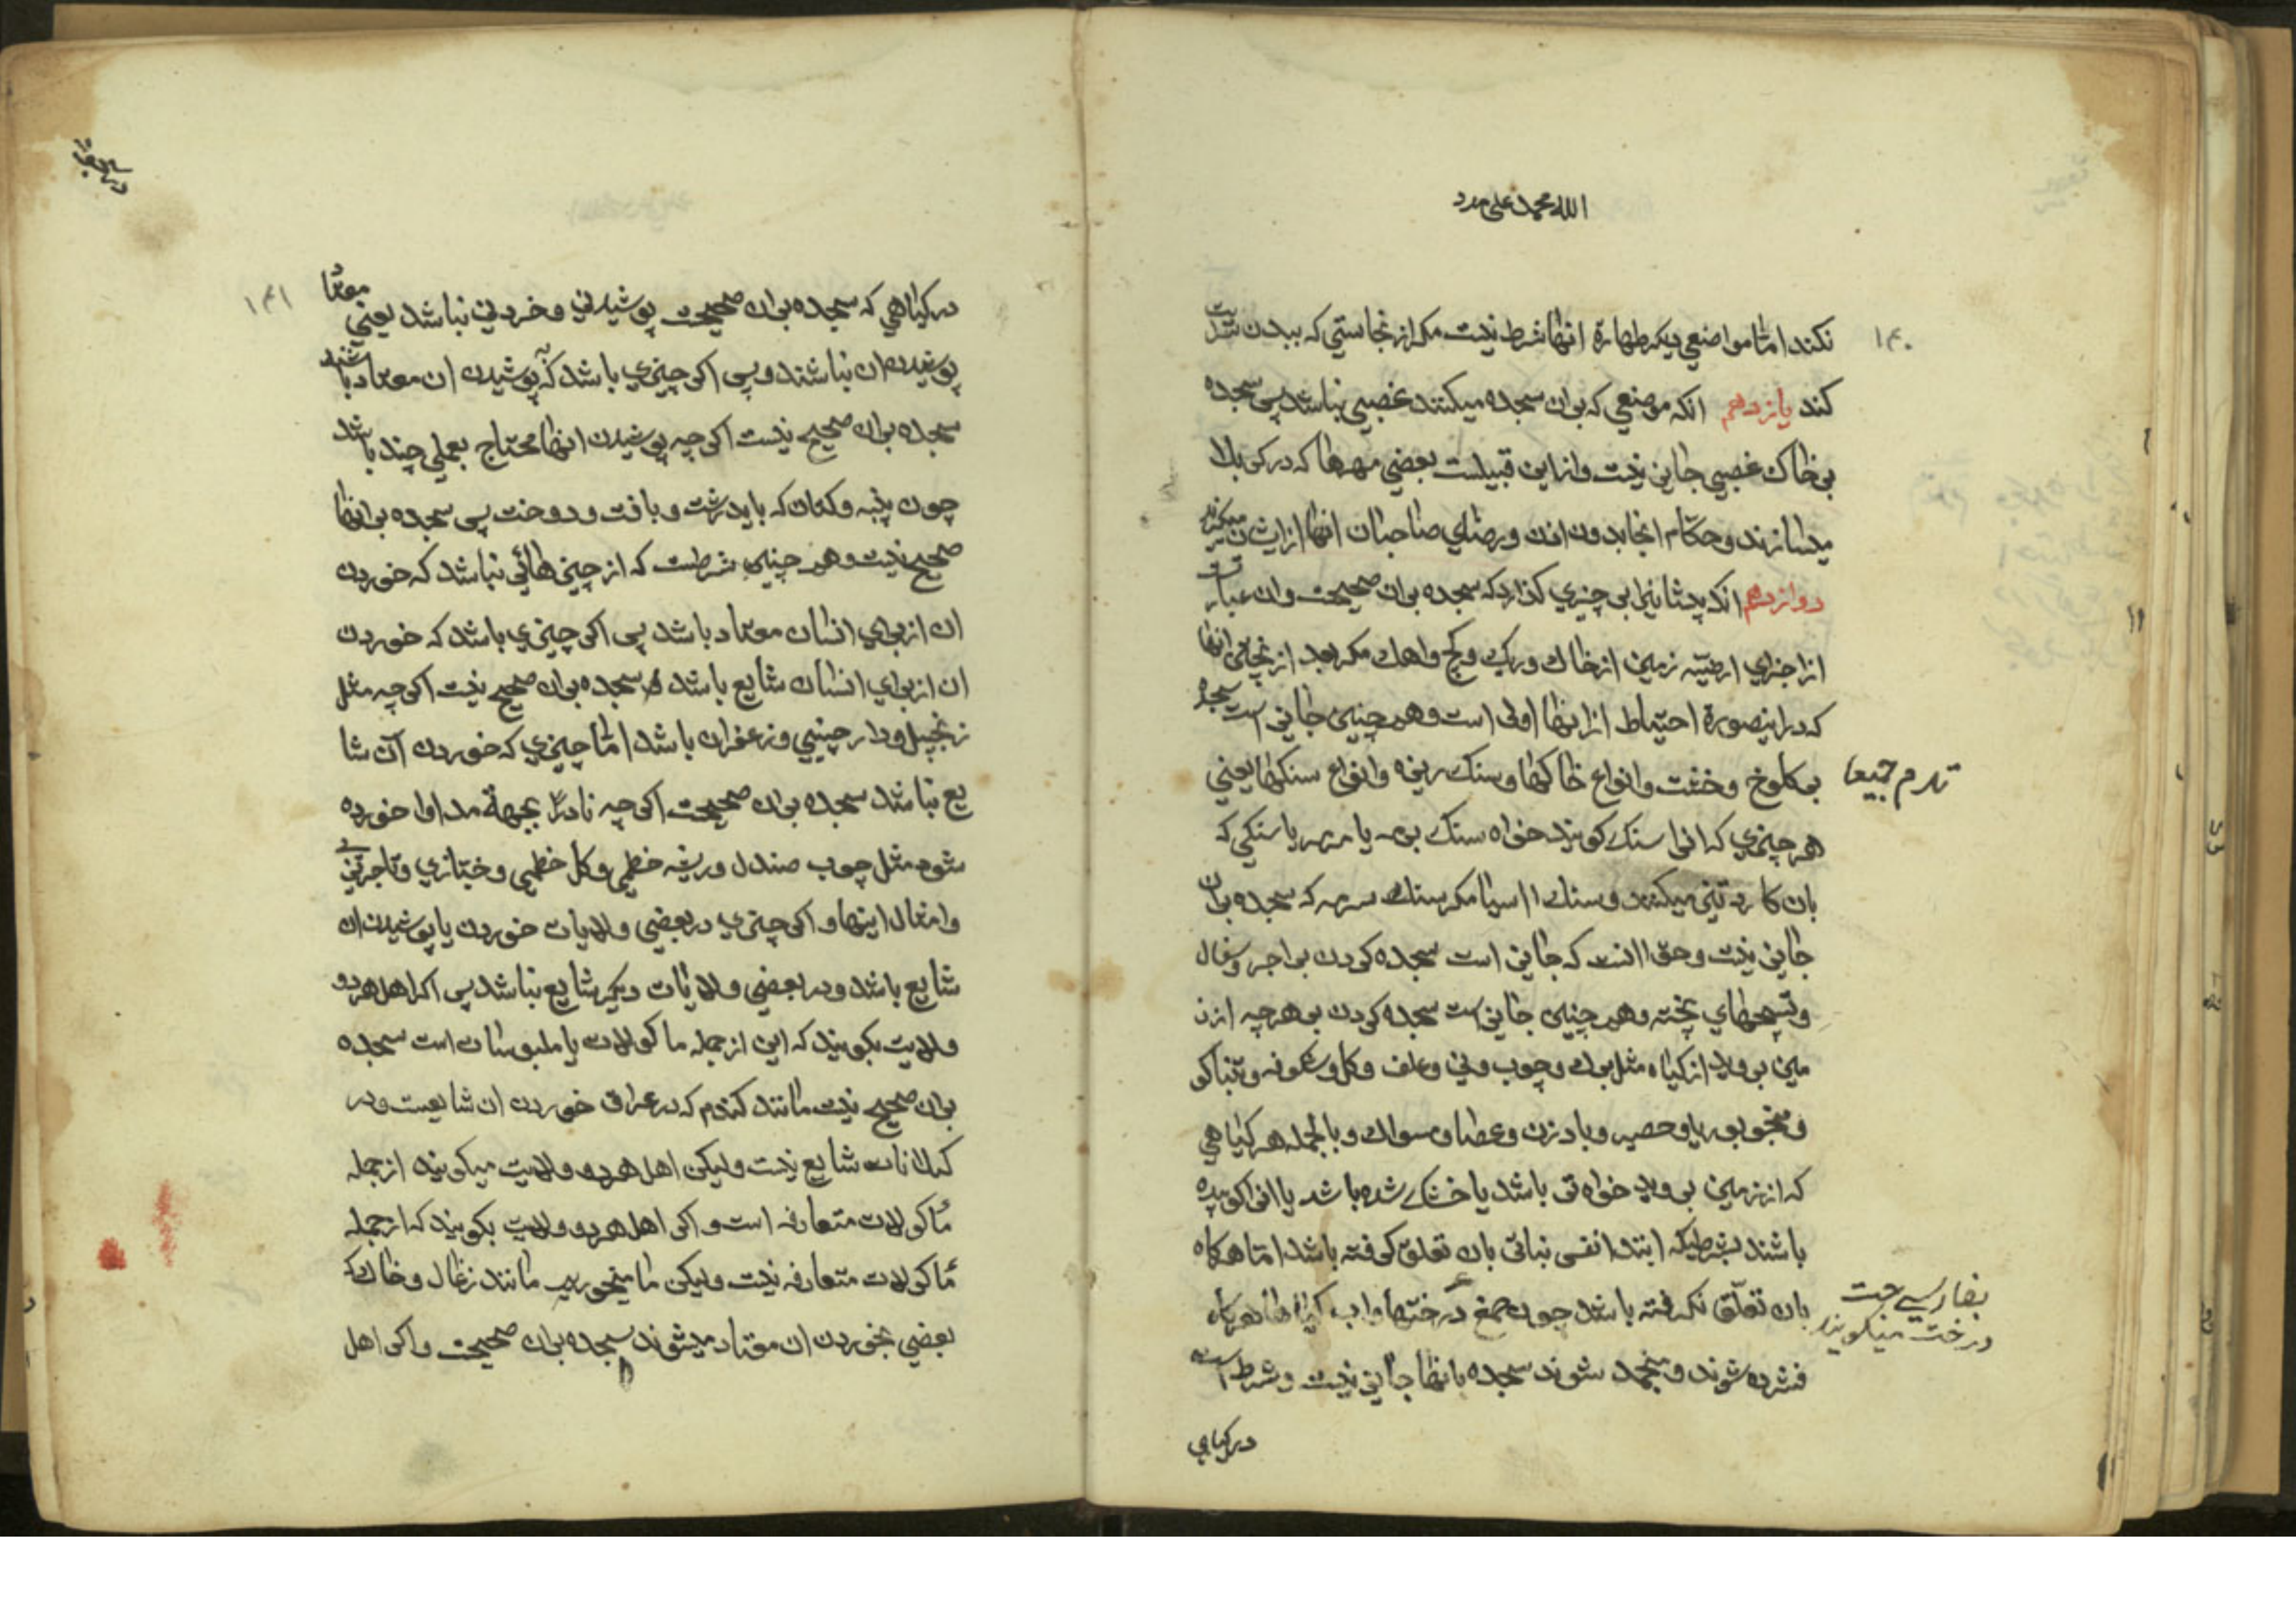 الله محمد علی مدد
۱۴۰
نکند اما مواضع دیکر طهارة انها شرط نیست مکر از نجاستی که ببدن سرایت
کند یازدهم انکه موضعی که بران سجده میکنند غصبی نباشد پس سجده
بر خاک غصبی جایز نیست و از این قبیلست بعضی مهرها که در کربلا
میسازند و حکام انجا بدون اذن و رضای صاحبان انها از ایشان میکیرند
دوازدهم انکه پیشانیرا بر چیزی کذارد که سجده بران صحیحست و ان عبارتست
از اجزای ارضیه زمین از خاک و ریک و کج و اهک مکر بعد از پختن انها
که در اینصورة احتیاط از اینها اولی است و همچنین جایز است سجده
بر کلوخ و خشت و انواع خاکها و سنک ریزه و انواع سنکها یعنی
هر چیزی که انرا سنک کویند خواه سنک بود یا مرمر یا سنکی که
بان کارد تیز میکنند و سنک اسیا مکر سنک سرمه که سجده بران
جایز نیست و حق انست که جایز است سجده کردن بر اجر و سفال
و تسبیحهای پخته و همچنین جایز است سجده کردن بر هر چه از ز
مین بروید از کیاه مثل برک و چوب و نی و علف و کل و شکوفه و تنباکو
و بوریا و حصیر و بادزن و عصا و مسواک و بالجمله هر کیاهی
که از زمین بروید خواه تر باشد یا خشک شده باشد یا انرا کوبیده
باشند بشرطیکه ابتدا نفس نباتی بان تعلق کرفته باشد اما هرکاه
بان تعلق نکرفته باشد چون صمغ درختها و اب کیاهها هرکاه
فشرده شوند و منجمد شوند سجده بانها جایز نیست و شرط است
در کیاهی
بفارسی
درخت میکویند
۱۴۱
در کیاهی که سجده بران صحیحست پوشیدنی و خردنی نباشد یعنی معتاد
پوشیدن ان نباشند و پس اکر چیزی باشد که پوشیدن ان معتاد باشند
سجده بران صحیح نیست اکر چه پوشیدن انها محتاج بعملی چند باشد
چون پنبه و کتان که باید رشت و بافت و دوخت پس سجده بر انها
صحیح نیست و همچنین شرطست که از چیزهائی نباشد که خوردن
ان از برای انسان معتاد باشد پس اکر چیزی باشد که خوردن
ان از برای انسان شایع باشد سجده بران صحیح نیست اکر چه مثل
زنجبیل و دارچینی و زعفران باشد اما چیزی که خوردن آن شا
یع نباشد سجده بران صحیحست اکر چه نادرًا بجهة مداوا خورده
شود مثل چوب صندل و ریشه خطمی و کل خطمی و خبازی و تاجریزی
و امثال اینها و اکر چیزی در بعضی ولایات خوردن یا پوشیدن ان
شایع باشد و در بعضی ولایات دیکر شایع نباشد پس اکر اهل هر دو
ولایت بکویند که این از جمله ماکولات یا ملبوسات است سجده
بران صحیح نیست مانند کندم که در عراق خوردن ان شایعست و در
کیلانات شایع نیست ولیکن اهل هر دو ولایت میکویند از جمله
ماکولات متعارفه است و اکر اهل هر دو ولایت بکویند که از جمله
ماکولات متعارفه نیست ولیکن ما میخوریم مانند زغال و خاک که
بعضی بخوردن ان معتاد میشوند سجده بران صحیحست و اکر اهل